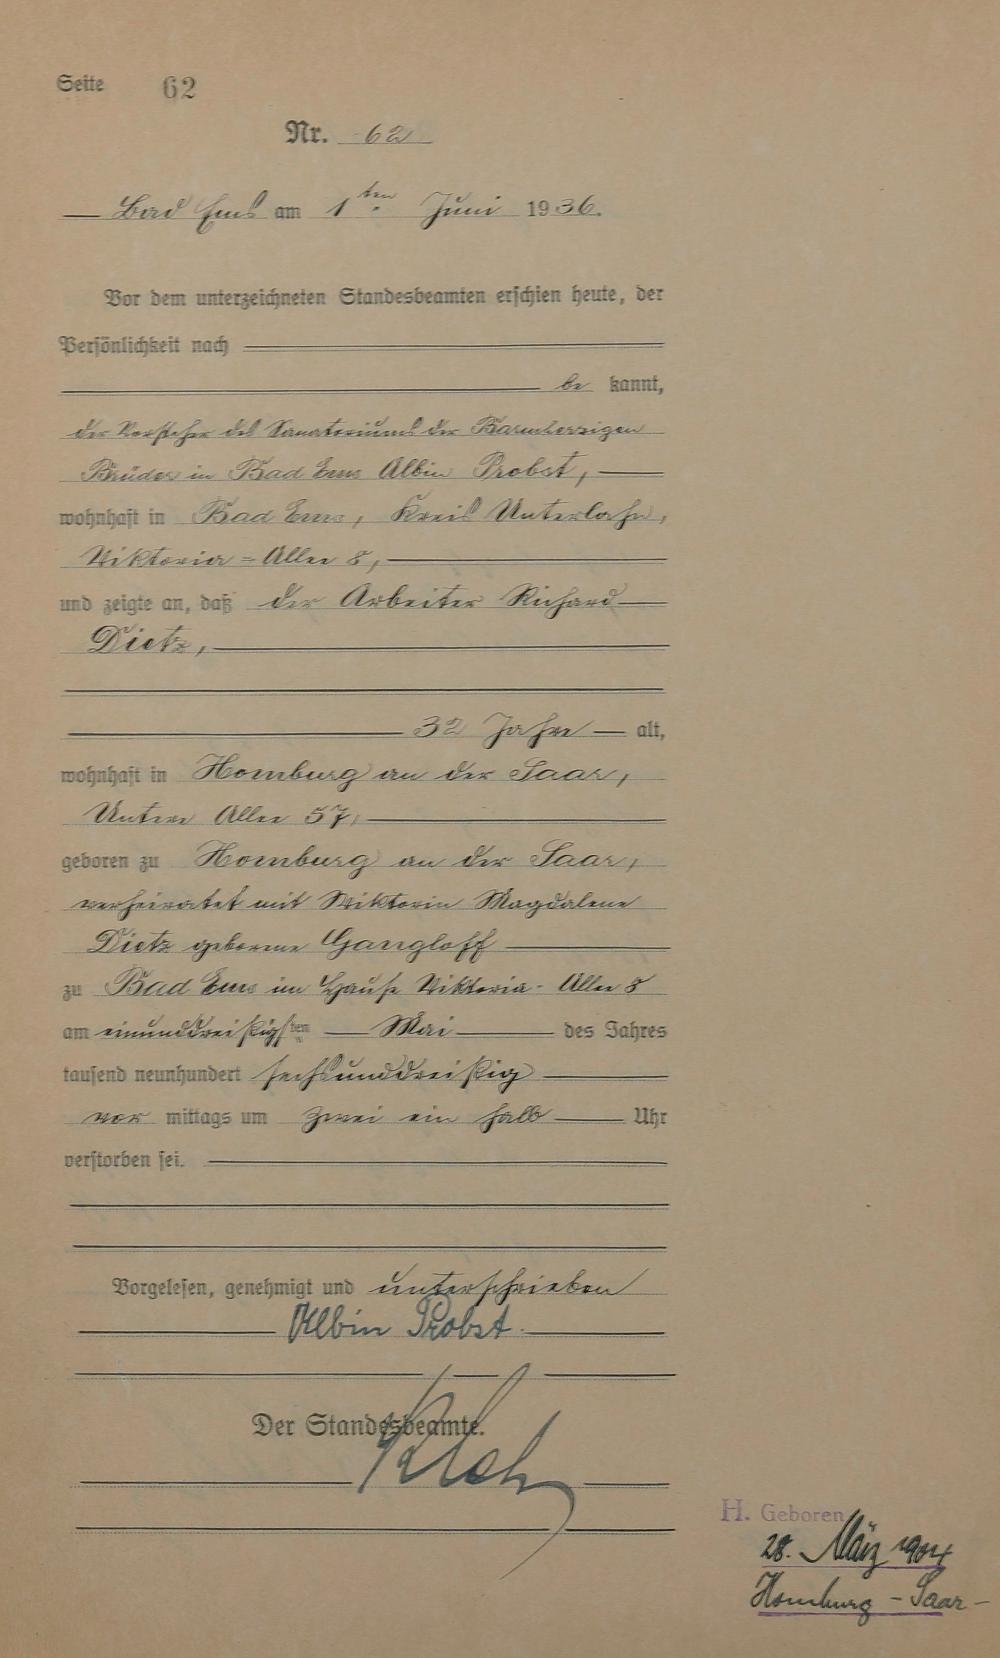 Seite 62
Nr. 62
Bad Ems am 1ten Juni 1936.
Vor dem unterzeichneten Standesbeamten erschien heute, der
Persönlichkeit nach
be kannt,
der Vorsteher des Sanatoriums der Barmherzigen
Brüder in Bad Ems Albin Probst,
wohnhaft in Bad Ems, Kreis Unterlahn,
Viktoria-Allee 8,
und zeigte an, daß der Arbeiter Richard
Dietz,
32 Jahre alt,
wohnhaft in Homburg an der Saar,
Untere Allee 57,
geboren zu Homburg an der Saar,
verheiratet mit Viktoria Magdalene
Dietz geborene Gangloff
zu Bad Ems im Hause Viktoria-Allee 8
am einunddreißigsten Mai des Jahres
tausend neunhundert sechsunddreißig
vor mittags um zwei ein halb Uhr
verstorben sei.
Vorgelesen, genehmigt und unterschrieben
Albin Probst.
Der Standesbeamte.
H. Geboren
28. März 1904
Homburg - Saar -